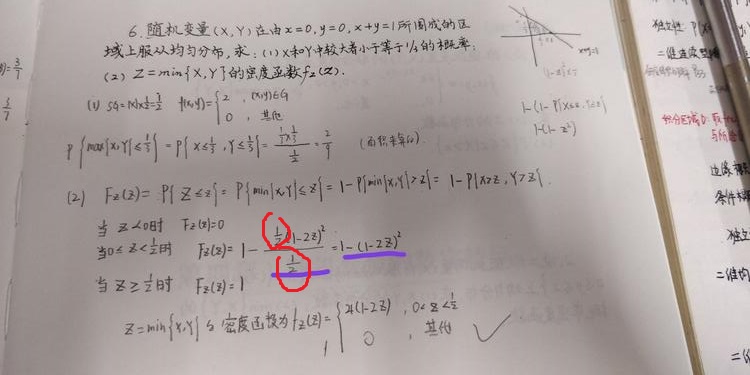 6. 随机变量(X,Y)在由x=0,y=0,x+y=1所围成的区
域上服从均匀分布,求:(1)X和Y中较大者小于等于1/3的概率;
(2) Z=min{X,Y}的密度函数fz(z).
(1) SG=1×1×1/2=1/2 f(x,y)={2, (x,y)∈G
0, 其他
P{max{X,Y}≤1/3}=P{X≤1/3,Y≤1/3}=(1/3×1/3)/(1/2)=2/9 (面积来算的)
(2) Fz(z)=P{Z≤z}=P{min{X,Y}≤z}=1-P{min{X,Y}>z}=1-P{X>z,Y>z}.
当 z<0时 Fz(z)=0
当0≤z<1/2时 Fz(z)=1-(1/2(1-2z)²)/(1/2)=1-(1-2z)²
当 z≥1/2时 Fz(z)=1
Z=min{X,Y}的密度函数为fz(z)={4(1-2z), 0<z<1/2
0, 其他
x+y=1
1-(1-z²)
3/7
3/7
独立性
二维连续型
与
边缘
条件
独立
二维